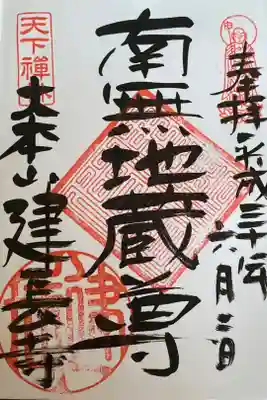 奉拝 平成三十年
六月 日
南無地蔵尊
天下禪林
大本山建長寺